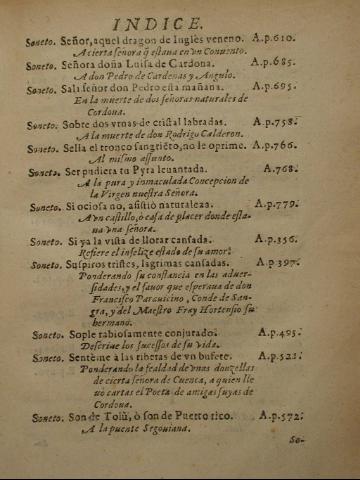 INDICE.
Soneto. Señor, aquel dragon de Inglès veneno. A.p.610.
A cierta señora q̃ estaua en vn Conuento.
Soneto. Señora doña Luisa de Cardona. A.p.685.
A don Pedro de Cardenas y Angulo.
Soneto. Salì señor don Pedro esta mañana. A.p.695.
En la muerte de dos señoras naturales de
Cordoua.
Soneto. Sobre dos vrnas de cristal labradas. A.p.758.
A la muerte de don Rodrigo Calderon.
Soneto. Sella el tronco sangriẽto, no le oprime. A.p.766.
Al mismo assunto.
Soneto. Ser pudiera tu Pyra leuantada. A.768.
A la pura y inmaculada Concepcion de
la Virgen nuestra Señora.
Soneto. Si ociosa no, asistiò naturaleza. A.p.779.
A vn castillo, ò casa de placer donde esta-
ua vna señora.
Soneto. Si ya la vista de llorar cansada. A.p.356.
Refiere el infelize estado de su amor.
Soneto. Suspiros tristes, lagrimas cansadas. A.p.397.
Ponderando su constancia en las aduer-
sidades, y el fauor que esperaua de don
Francisco Parauicino, Conde de San-
gra, y del Maestro Fray Hortensio su
hermano.
Soneto. Sople rabiosamente conjurado. A.p.405.
Descriue los sucessos de su vida.
Soneto. Sentème à las riberas de vn bufete. A.p.521.
Ponderando la fealdad de vnas donzellas
de cierta señora de Cuenca, a quien lle
uò cartas el Poeta de amigas suyas de
Cordoua.
Soneto. Son de Tolù, ò son de Puerto rico. A.p.572.
A la puente Segouiana.
So-